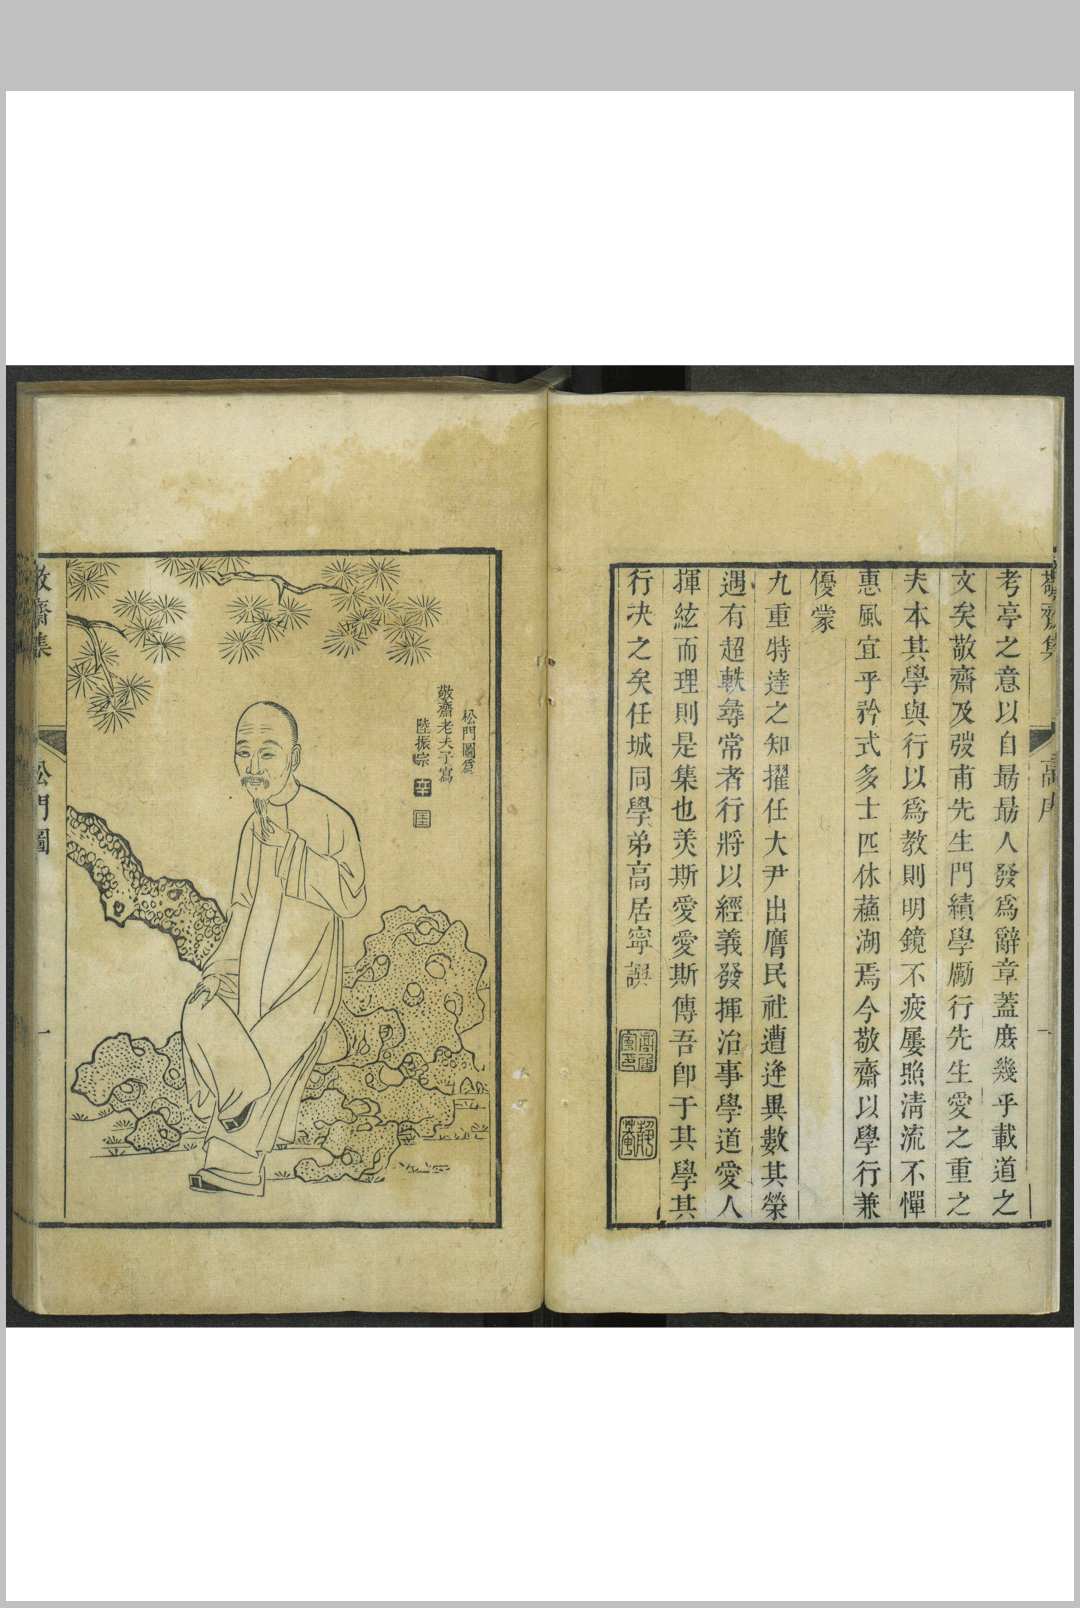 敬齋集
考亭之意以自勗勗人發爲辭章蓋庶幾乎載道之
文矣敬齋及弢甫先生門績學勵行先生愛之重之
夫本其學與行以爲教則明鏡不疲屢照清流不憚
惠風宜乎矜式多士匹休蘓湖焉今敬齋以學行兼
優蒙
九重特達之知擢任大尹出膺民社遭逢異數其榮
遇有超軼尋常者行將以經義發揮治事學道愛人
揮絃而理則是集也羙斯愛愛斯傳吾卽于其學其
行決之矣任城同學弟高居寧譔
松門圖爲
敬齋老夫子寫
陸振宗
敬齋集
松門圖
一